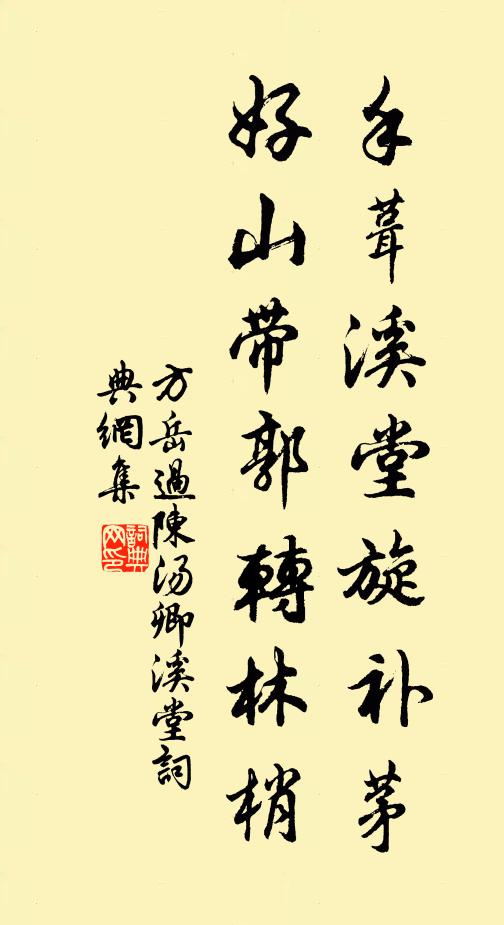 手葺溪堂旋补茅
好山带郭轉林梢
方岳過陳汤卿溪堂詞
典網集
詞典
网印